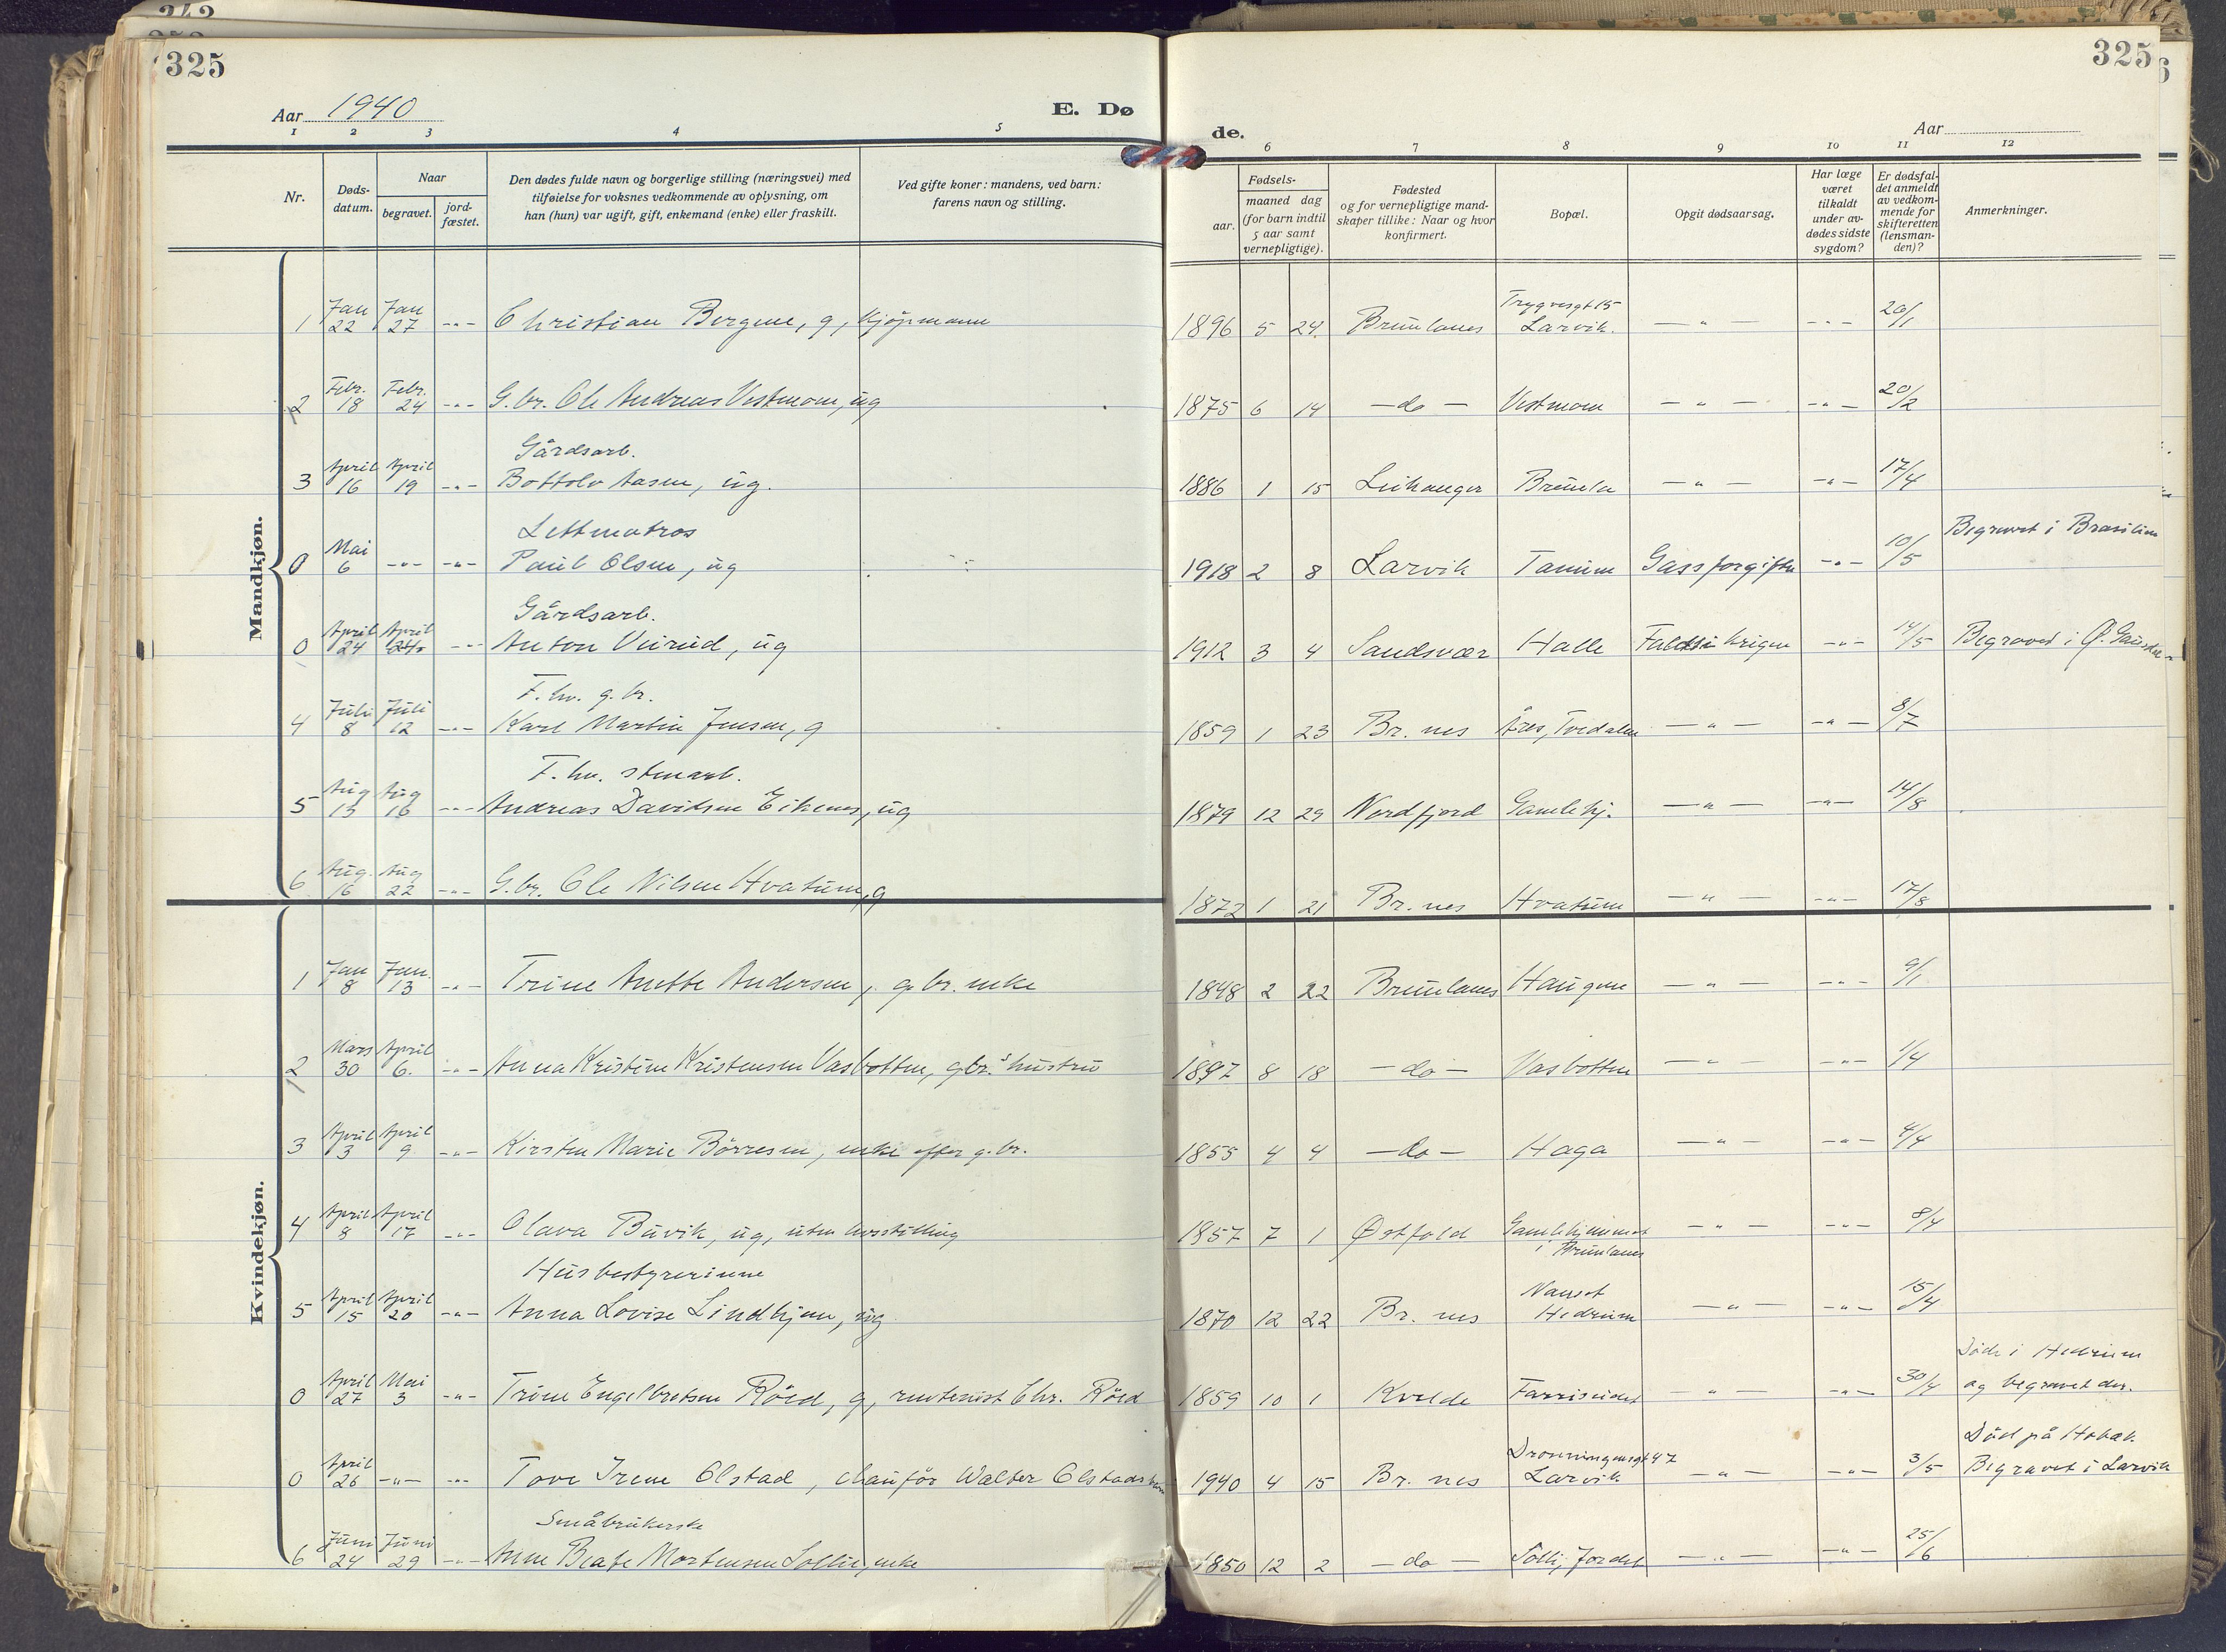 325
325
Aar 1940
E. Dø
de.
Aar
1 2 3 4 5 6 7 8 9 10 11 12
Nr.
Døds-
datum.
Naar
begravet.
jord-
fæstet.
Den dødes fulde navn og borgerlige stilling (næringsvei) med
tilføielse for voksnes vedkommende av oplysning, om
han (hun) var ugift, gift, enkemand (enke) eller fraskilt.
Ved gifte koner: mandens, ved barn:
farens navn og stilling.
Fødsels-
aar.
maaned dag
(for barn indtil
5 aar samt
vernepligtige).
Fødested
og for vernepligtige mand-
skaper tillike: Naar og hvor
konfirmert.
Bopæl.
Opgit dødsaarsag.
Har læge
været
tilkaldt
under av-
dødes sidste
sygdom?
Er dødsfal-
det anmeldt
av vedkom-
mende for
skifteretten
(lensman-
den)?
Anmerkninger.
Mandkjøn.
1 Jan 22 Jan 27 -"- Christian Bergene, g, kjöpmann 1896 5 24. Brunlanes Trygvesgt 15 Larvik. -"- -"- 26/1
2 Febr. 18 Febr. 24 -"- G.br. Ole Andreas Vestmom, ug 1875 6 14 -do- Vestmom -"- -"- 20/2
Gårdsarb.
3 April 16 April 19 -"- Bottolv Aasen, ug. 1886 1 15 Leikanger Brunla -"- -"- 17/4
Lettmatros
0 Mai 6 -"- -"- Paul Olsen, ug 1918 2 8 Larvik Tanum Gassforgiftn -"- 10/5 Begravet i Brasilien
Gårdsarb.
0 April 24 April 24 -"- Anton Virud, ug 1912 3 4 Sandsvær Halle Falt i krigen -"- 14/5 Begravet i Ø. Gausdal
F. hv. g.br.
4 Juli 8 Juli 12 -"- Karl Martin Jensen, g 1859 1 23 Br.nes Åres, Tvedalen -"- -"- 8/7
F. hv. stenarb.
5 Aug 13 Aug 16 -"- Andreas Davidsen Eikenes, ug 1879 12 29 Nordfjord Gamlehj. -"- -"- 14/8
6 Aug. 16 Aug 22 -"- G.br. Ole Nilsen Hvatum, g 1872 1 21 Br.nes Hvatum -"- -"- 17/8
Kvindekjøn.
1 Jan 8 Jan. 13 -"- Trine Anette Andersen, g.br. enke 1848 2 22 Brunlanes Haugene -"- -"- 9/1
2 Mars 30 April 6. -"- Anna Kristine Kristensen Vasbotten, gbr.'s hustru 1897 8 18 -do- Vasbotten -"- -"- 1/4
3 April 3 April 9 -"- Kirsten Marie Börresen, enke efter g.br. 1855 4 4 -do- Haga -"- -"- 4/4
4 April 8 April 17 -"- Olava Buvik, ug, uten livsstilling 1857 7 1 Østfold Gamlehjemmet i Brunlanes -"- -"- 8/4
Husbestyrerinne
5 April 15 April 20 -"- Anna Lovise Lindhjem, ug 1870 12 22 Br.nes Nanset Hedrum -"- -"- 15/4
0 April 27 Mai 3 -"- Trine Engelbretsen Röed, g, rentenist Chr. Röed 1859 10 1 Kvelde Farriseidet -"- -"- 30/4 Död i Hedrum og begravet der.
0 April 26 -"- -"- Tove Irene Olstad, chauför Walter Olstads barn 1940 4 15 Br.nes Dronningensgt 47 Larvik -"- -"- 3/5 Död på Begravet i Larvik
Småbrukerske
6 Juni 24 Juni 29 -"- Anne Beate Mortensen Sollie, enke 1850 12 2 -do- Solli, Jordet -"- -"- 25/6